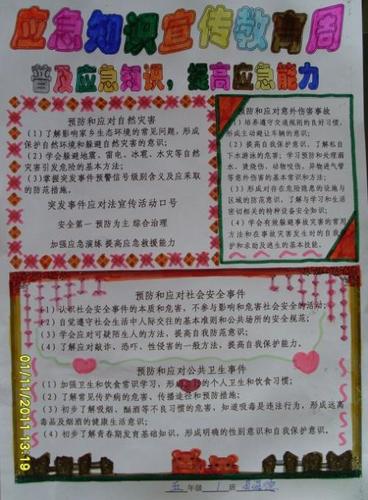 应急知识宣传教育周
普及应急知识，提高应急能力
预防和应对自然灾害
(1)了解影响家乡生态环境的常见问题，形成
保护自然环境和躲避自然灾害的意识；
(2)学会躲避地震、雷电、冰雹、水灾等自然
灾害引发危险的基本方法；
(3)掌握突发事件预警信号级别含义及应采取
的防范措施。
突发事件应对法宣传活动口号
安全第一 预防为主 综合治理
加强应急演练 提高应急救援能力
预防和应对意外伤害事故
(1)培养遵守交通规则的良好习惯，
形成主动避让车辆的意识；
(2)提高自我保护意识，了解私自
下水游泳的危害；学习预防和处理溺
水、烫烧伤、动物咬伤、异物进气管
等意外伤害的基本常识和方法；
(3)形成对存在危险隐患的设施与
区域的防范意识，了解与学习和生活
密切相关的特种设备安全知识；
(4)学会有效躲避事故灾害的常用
方法和在事故灾害发生时的自我保
护和求助及逃生的基本技能。
预防和应对社会安全事件
(1)认识社会安全事件的本质和危害，不参与影响和危害社会安全的活动；
(2)自觉遵守社会生活中人际交往的基本准则和公共场所的安全规范；
(3)学会应对可疑陌生人的方法，提高自我防范意识；
(4)了解应对敲诈、恐吓、性侵害的一般方法，提高自我保护能力。
预防和应对公共卫生事件
(1)加强卫生和饮食常识学习，形成良好的个人卫生和饮食习惯；
(2)了解常见传炉病的危害、传播途径和预防措施；
(3)初步了解吸烟、酗酒等不良习惯的危害，知道吸毒是违法行为，形成远离
毒品及烟酒的健康生活意识；
(4)初步了解青春期发育基础知识，形成明确的性别意识和自我保护意识。
五年级 1 班
01/11/2011 13:19